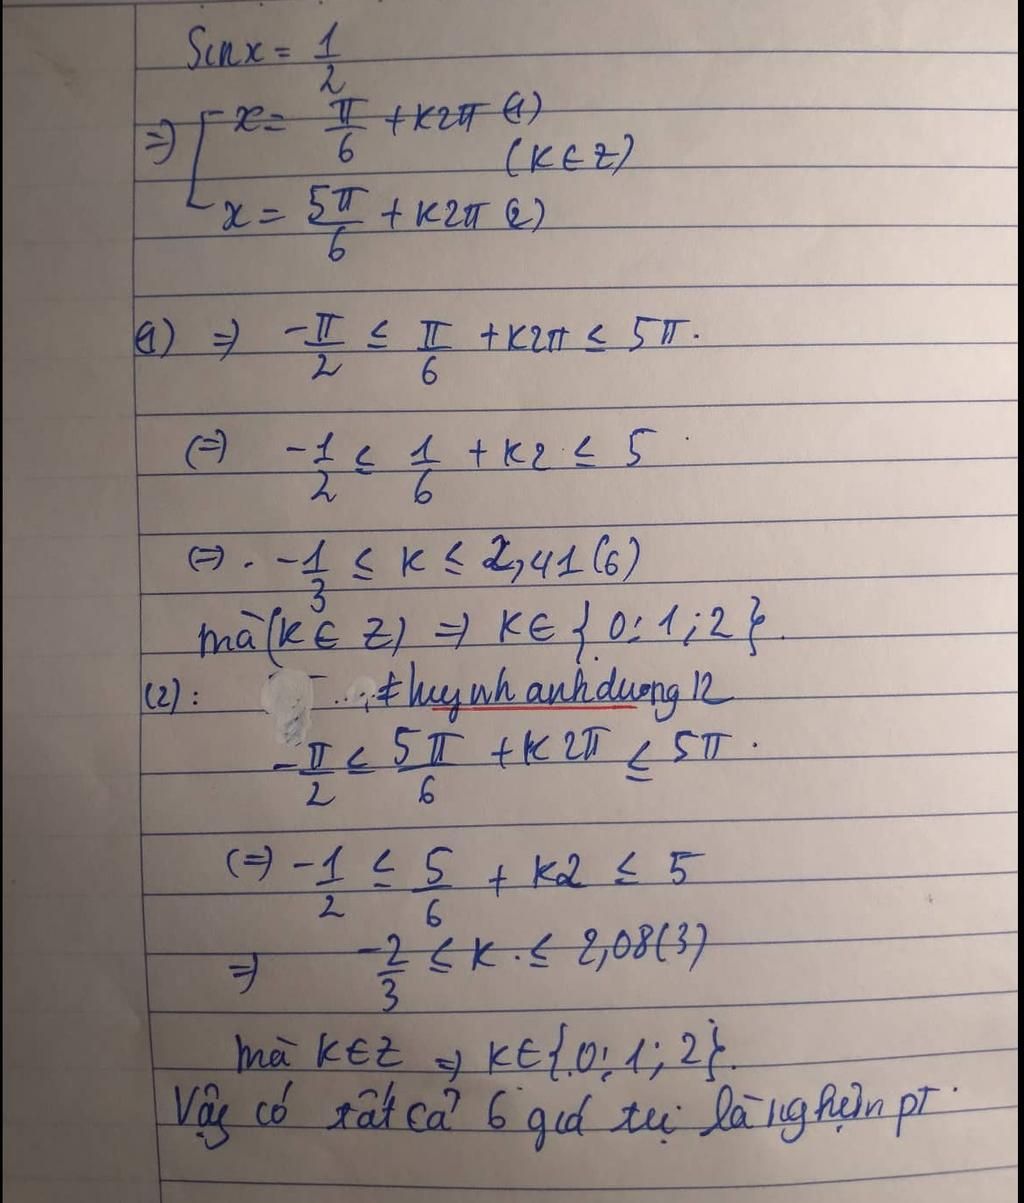 Sinx = 1/2
=> [ x = π/6 + k2π (1)
(K ∈ Z)
x = 5π/6 + k2π (2)
(1) => -π/2 ≤ π/6 + k2π ≤ 5π.
(=) -1/2 ≤ 1/6 + k2 ≤ 5
(=) . -1/3 ≤ k ≤ 2,41(6)
mà (k ∈ Z) => k ∈ {0; 1; 2}.
(2): ≠ huynhanhduong12
-π/2 ≤ 5π/6 + k2π ≤ 5π.
(=) -1/2 ≤ 5/6 + k2 ≤ 5
=> -2/3 ≤ k . ≤ 2,08(3)
mà k ∈ Z => k ∈ {0; 1; 2}.
Vậy có tất cả 6 giá trị là nghiệm pt.